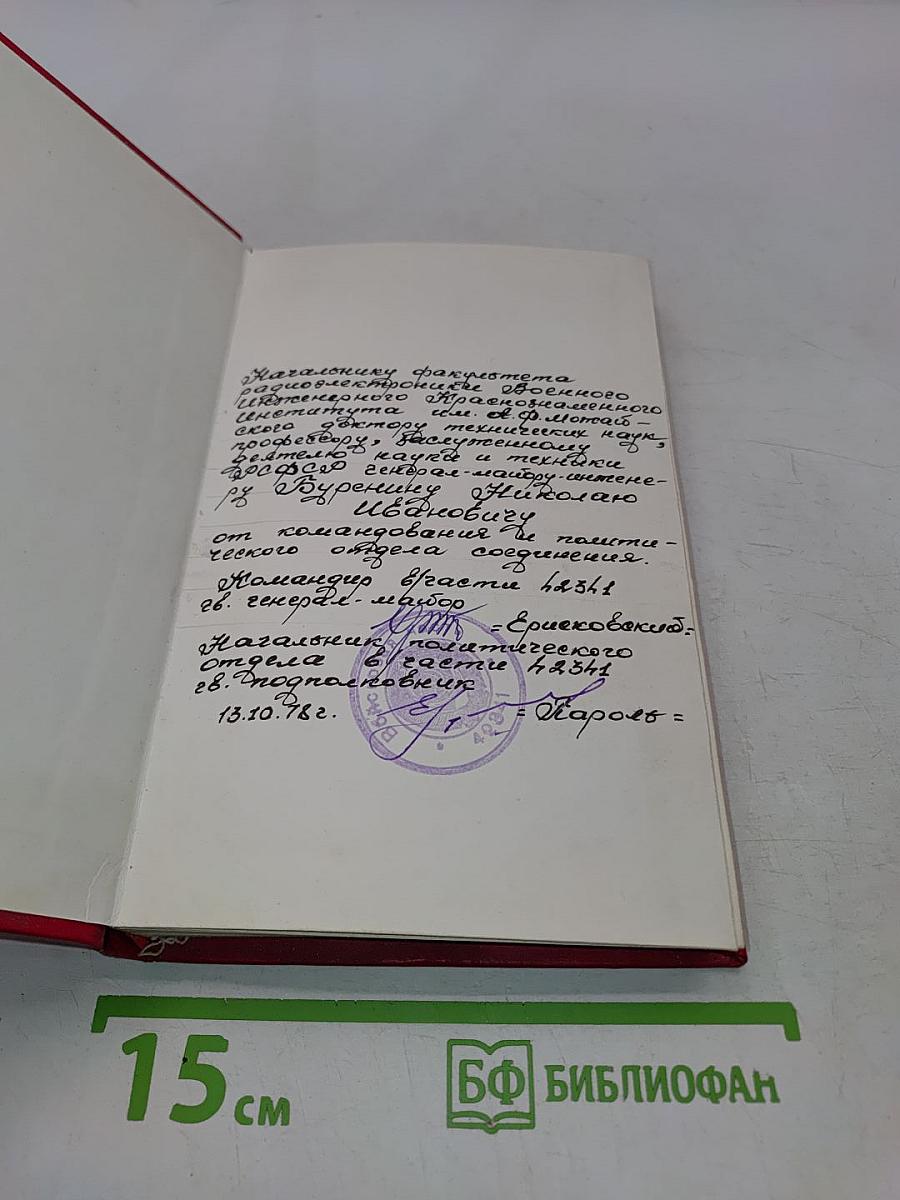 Начальнику факультета
радиоэлектроники Военного
Инженерного Краснознаменного
института им. А.Ф. Можай-
ского доктору технических наук,
профессору, заслуженному
деятелю науки и техники
РСФСР генерал-майору-инжене-
ру Буренину Николаю
Ивановичу
от командования и полити-
ческого отдела соединения.
Командир в/части 42341
гв. генерал-майор
=Ерисковский=
Начальник политического
отдела в части 42341
гв. подполковник
13.10.78г. =Пароль=
42341
15 см
БФ БИБЛИОФАН